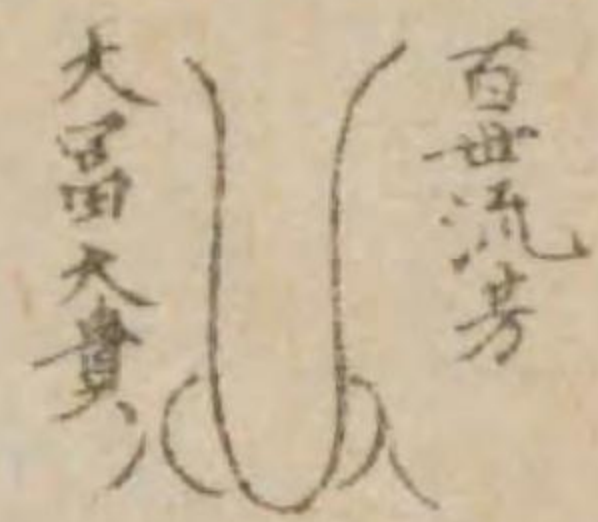 百世流芳
大冨大貴